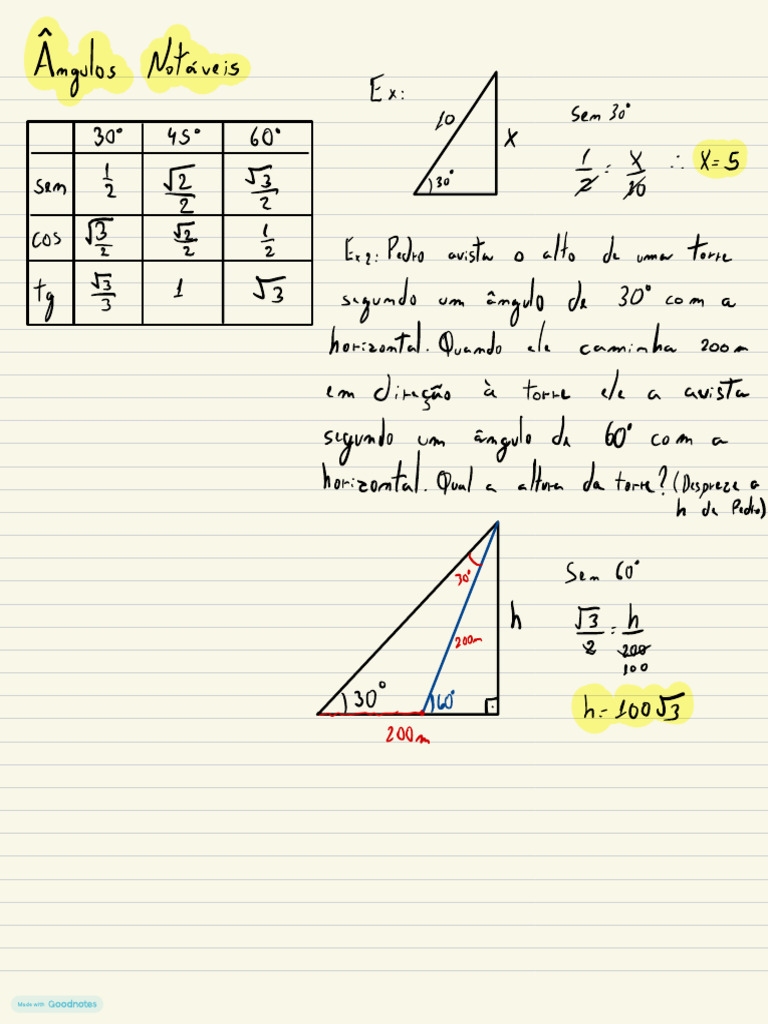 Ângulos Notáveis
30° 45° 60°
sen 1/2 √2/2 √3/2
cos √3/2 √2/2 1/2
tg √3/3 1 √3
Ex:
10
X
30°
Sen 30°
1/2 = X/10 ∴ X=5
Ex2: Pedro avista o alto de uma torre
segundo um ângulo de 30° com a
horizontal. Quando ele caminha 200m
em direção à torre ele a avista
segundo um ângulo de 60° com a
horizontal. Qual a altura da torre? (Despreze a
h de Pedro)
30°
200m
h
30°
60°
200m
Sen 60°
√3/2 = h/200
100
h=100√3
Made with Goodnotes